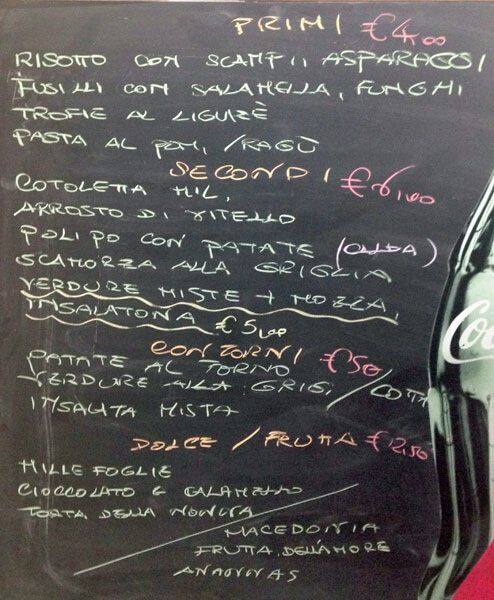 PRIMI €4,00
RISOTTO CON SCAMPI ASPARAGGI
FUSILLI CON SALAMELLA, FUNGHI
TROFIE AL LIGURE
PASTA AL POM, /RAGÙ
SECONDI €6,00
COTOLETTA MIL,
ARROSTO DI VITELLO
POLIPO CON PATATE (CALDA)
SCAMORZA ALLA GRIGLIA
VERDURE MISTE + MOZZA,
INSALATONA €5,00
CONTORNI
PATATE AL FORNO
VERDURE ALLA GRIG / COTTA
INSALATA MISTA
DOLCE / FRUTTA
MILLE FOGLIE
CIOCCOLATO E CALAMELLO
TORTA DELLA NONNA
MACEDONIA
FRUTTA DELL'AMORE
ANANNAS
Co